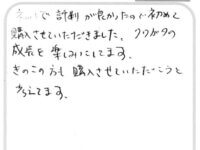 で 評判 が良かったので初めて
購入させていただきました。クワガタの
成長を楽しみにしてます。
きのこの方も購入させていただこうと
考えてます。